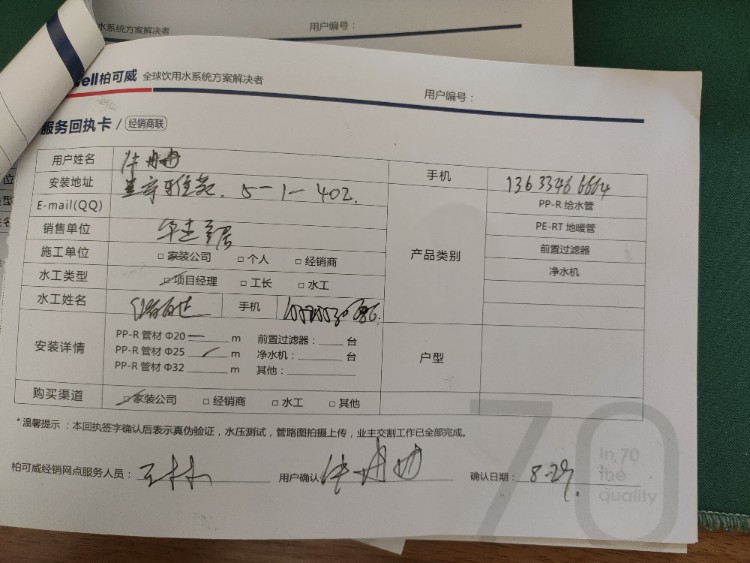 水系统方案解决者
用户编号：
ell柏可威 全球饮用水系统方案解决者
用户编号：
服务回执卡 / 经销商联
用户姓名
手机 13633466664
安装地址 5-1-402.
PP-R 给水管
E-mail(QQ)
产品类别
PE-RT 地暖管
销售单位
前置过滤器
施工单位 □ 家装公司 □ 个人 □ 经销商
净水机
水工类型 □ 项目经理 □ 工长 □ 水工
水工姓名 手机
安装详情
PP-R 管材 Φ20 m 前置过滤器： 台
PP-R 管材 Φ25 m 净水机： 台
PP-R 管材 Φ32 m 其他：
户型
购买渠道 □ 家装公司 □ 经销商 □ 水工 □ 其他
* 温馨提示：本回执签字确认后表示真伪验证，水压测试，管路图拍摄上传，业主交割工作已全部完成。
柏可威经销网点服务人员： 用户确认 确认日期： 8-29.
70
In 70
the
quality